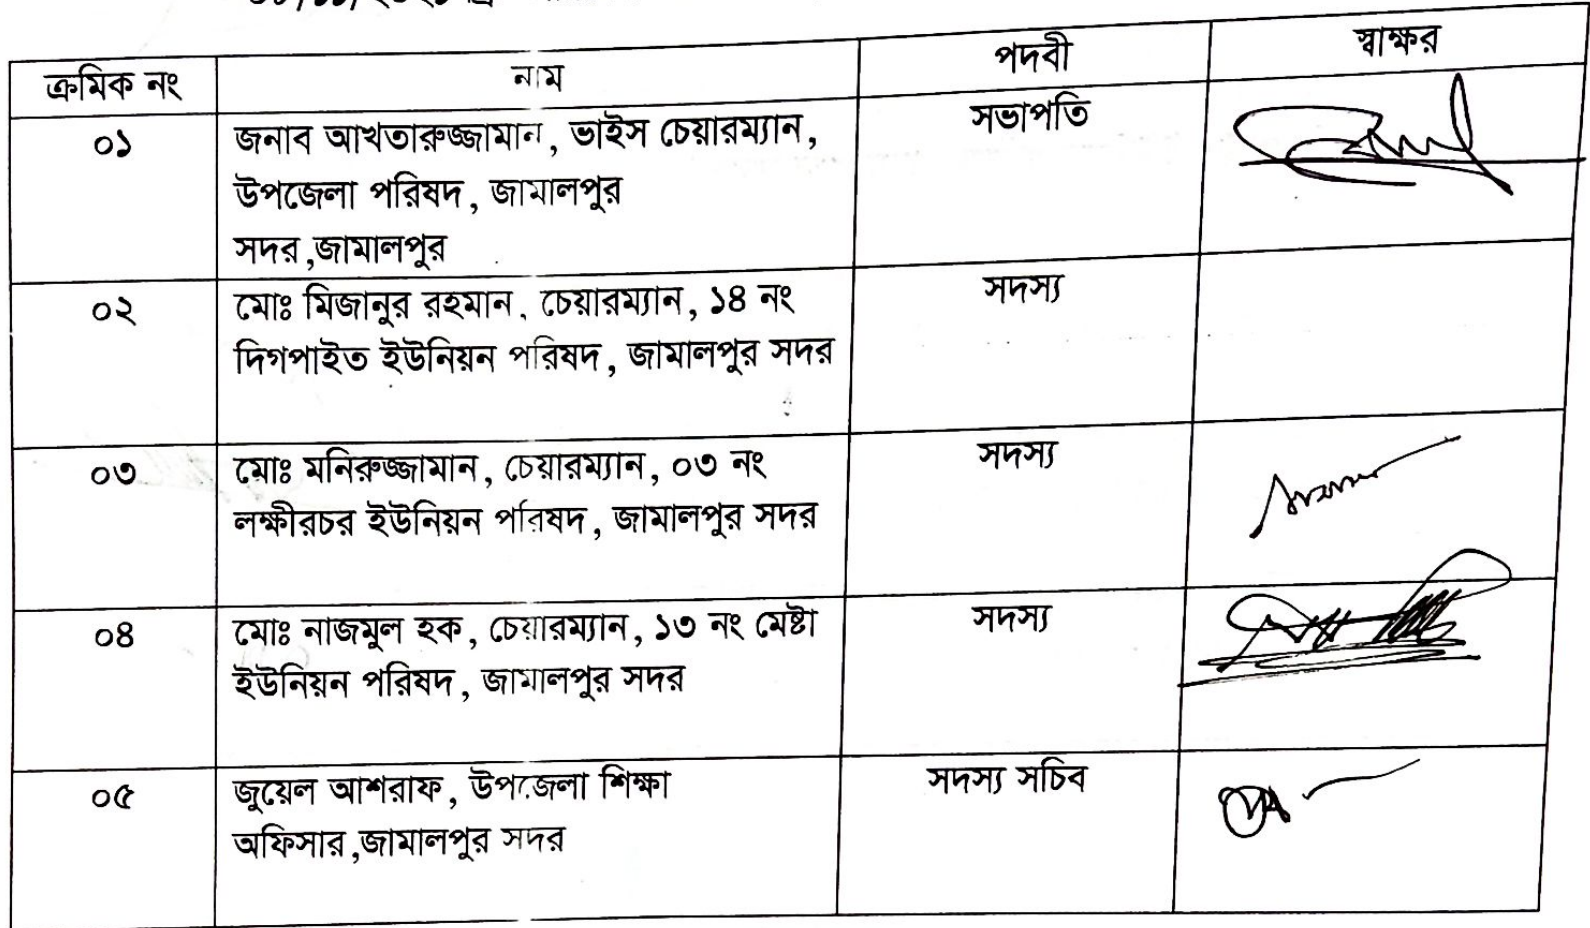 ক্রমিক নং নাম পদবী স্বাক্ষর
০১ জনাব আখতারুজ্জামান, ভাইস চেয়ারম্যান, সভাপতি
উপজেলা পরিষদ, জামালপুর
সদর,জামালপুর
০২ মোঃ মিজানুর রহমান, চেয়ারম্যান, ১৪ নং সদস্য
দিগপাইত ইউনিয়ন পরিষদ, জামালপুর সদর
০৩ মোঃ মনিরুজ্জামান, চেয়ারম্যান, ০৩ নং সদস্য
লক্ষীরচর ইউনিয়ন পরিষদ, জামালপুর সদর
০৪ মোঃ নাজমুল হক, চেয়ারম্যান, ১৩ নং মেষ্টা সদস্য
ইউনিয়ন পরিষদ, জামালপুর সদর
০৫ জুয়েল আশরাফ, উপজেলা শিক্ষা সদস্য সচিব
অফিসার,জামালপুর সদর